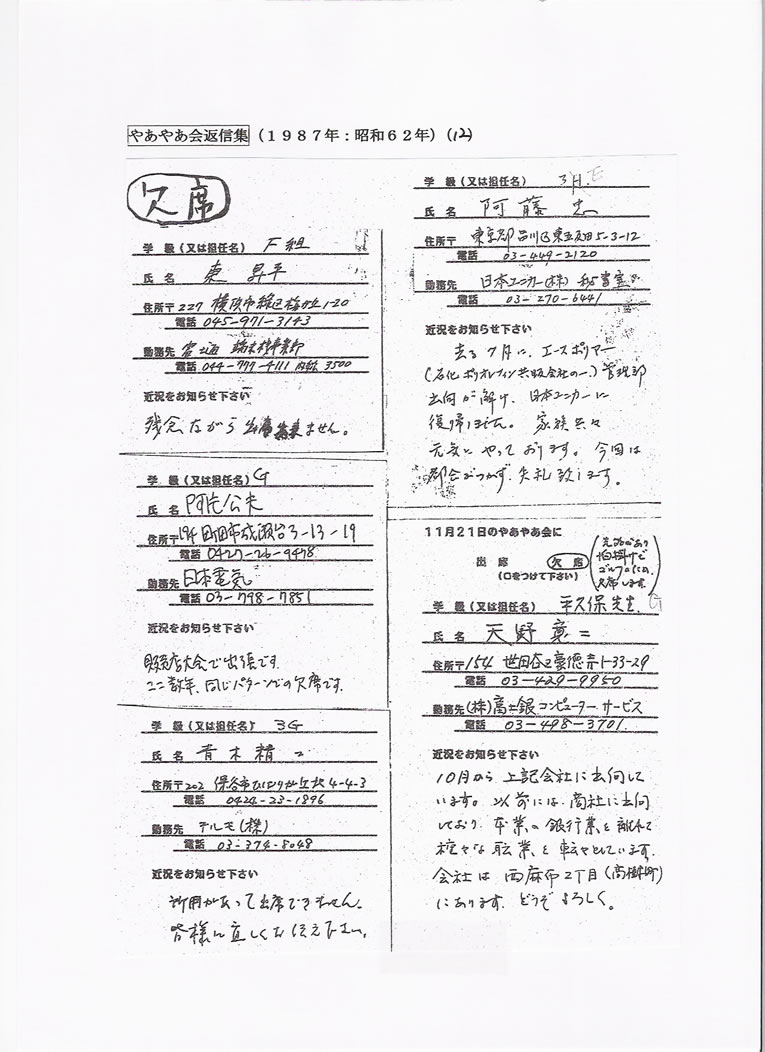 やあやあ会返信集（１９８７年：昭和６２年）(12)
欠席
学 級（又は担任名） F組
氏 名 東 昇平
住所〒227 横浜市緑区梅が丘1-20
電話 045-971-3143
勤務先 富士通 端末機事業部
電話 044-777-4111 内線 3500
近況をお知らせ下さい
残念ながら出席出来ません。
学 級（又は担任名） G
氏 名 阿虎公夫
住所〒194 町田市成瀬台3-13-19
電話 0427-26-9478
勤務先 日本電気
電話 03-798-7851
近況をお知らせ下さい
販売店大会で出張です。
ここ数年、同じパターンでの欠席です。
学 級（又は担任名） 3G
氏 名 青木精二
住所〒202 保谷市ひばりが丘北4-4-3
電話 0424-23-1896
勤務先 テルモ(株)
電話 03-374-8048
近況をお知らせ下さい
所用があって出席できません。
皆様に宜しくお伝え下さい。
学 級（又は担任名） 3H. E
氏 名 阿藤 忠
住所〒 東京都品川区東五反田5-3-12
電話 03-449-2120
勤務先 日本ユニカー(株) 秘書室
電話 03-270-6441
近況をお知らせ下さい
去る7月に、エースポリマー
(石化ポリオレフィン共販会社の一) 管理部
出向が解け、日本ユニカーに
復帰しました。 家族共々
元気にやっております。今回は
都合がつかず、失礼致します。
11月21日のやあやあ会に
出 席 欠 席
(○をつけて下さい)
(先約があり
泊掛けで
ゴルフのため
欠席します。)
学 級（又は担任名） 平久保先生 G
氏 名 天野 寛二
住所〒154 世田谷区豪徳寺1-33-29
電話 03-429-9950
勤務先 (株)富士銀コンピューターサービス
電話 03-498-3701
近況をお知らせ下さい
10月から上記会社に出向して
います。以前には、商社に出向
しており、本業の銀行業を離れて
様々な職業を転々としています。
会社は西麻布2丁目(高樹町)
にあります。どうぞよろしく。